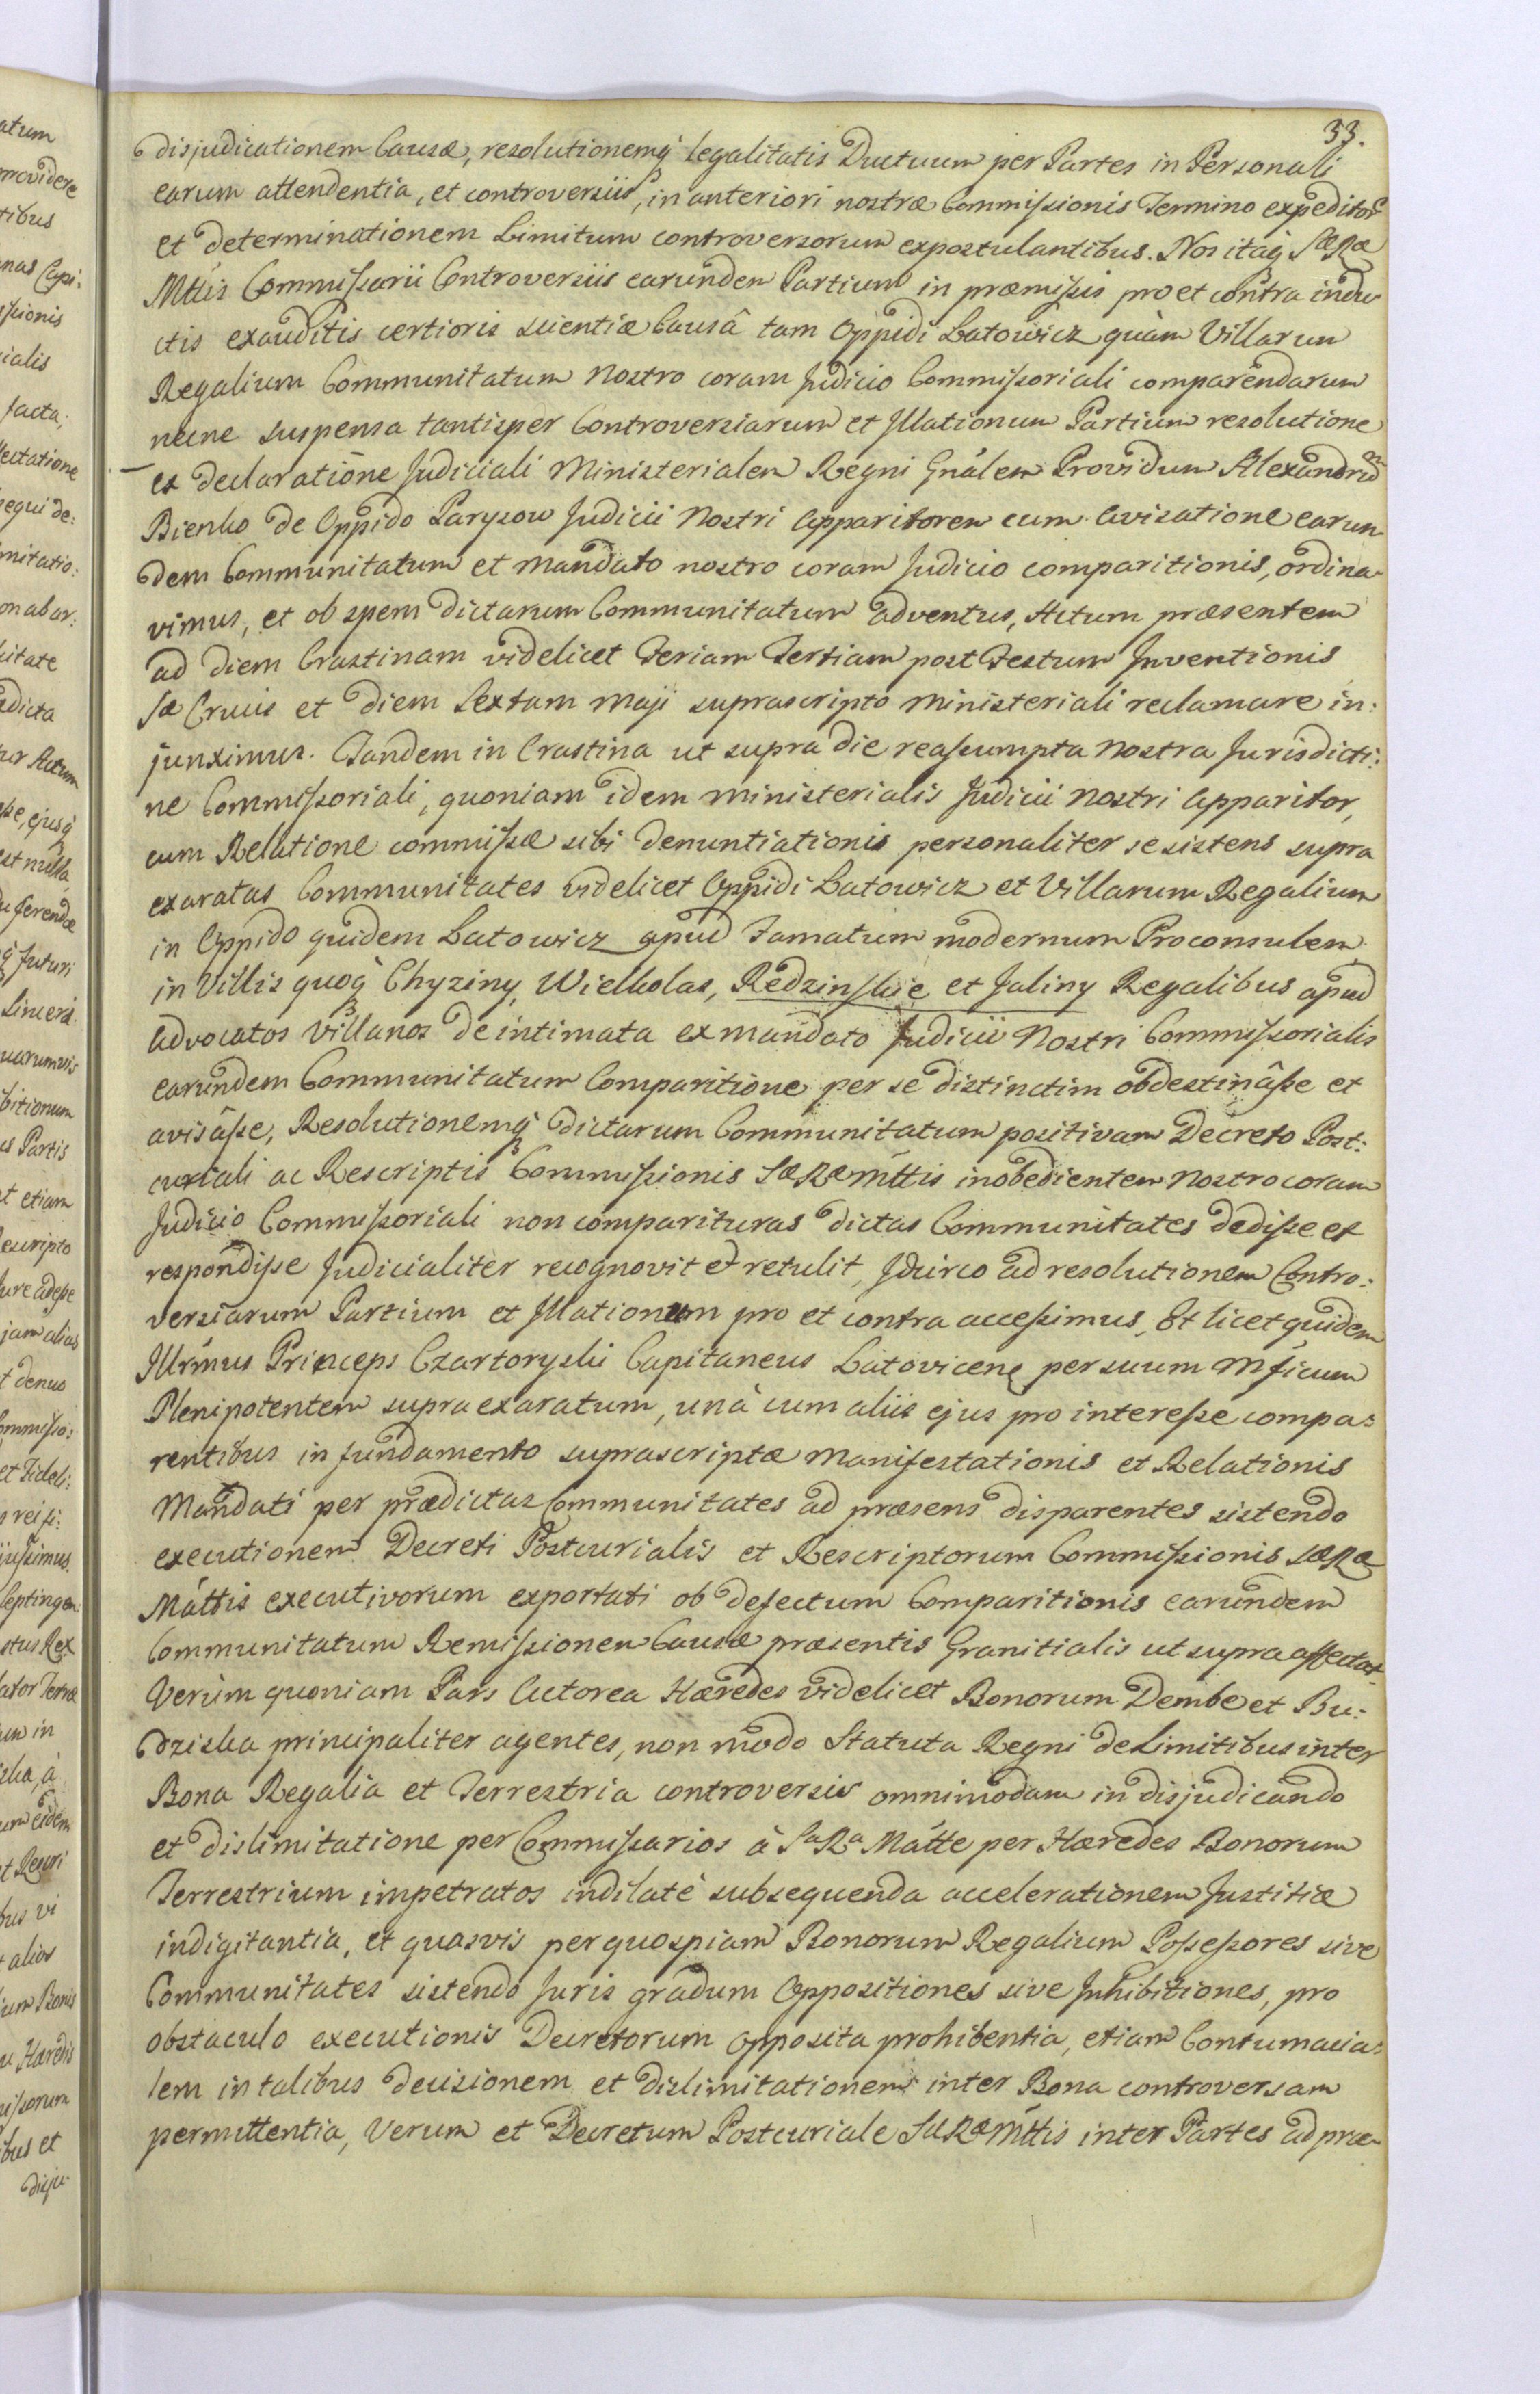 33.
disjudicationem Causæ, resolutionemq̃ legalitatis Ductuum per Partes in Personali
earum attendentia, et controversiis, in anteriori nostræ Commissionis Termino expeditos
et determinationem Limitum controversorum expostulantibus. Nos itaq̃ SæRæ
Mttis Commissarii Controversiis earundem Partium in præmissis pro et contra indu
ctis exauditis certioris scientiæ Causâ tam Oppidi Latowicz quàm Villarum
Regalium Communitatum Nostro coram Judicio Commissoriali comparendarum
nunc suspensa tantisper Controversiarum et Illationum Partium resolutione
et declaratione Judiciali Ministerialem Regni Gnãlem Providum Alexandrũ
Bienko de Oppido Parysow Judicii Nostri Apparitorem cum Avisatione earun
dem Communitatum et mandato nostro coram Judicio comparitionis, ordina
vimus, et ob spem dictarum Communitatum adventus, Actum præsentem
ad diem Crastinam videlicet Feriam Tertiam post Festum Inventionis
Sæ Crucis et diem Sextam Maji suprascripto Ministeriali reclamare in:
junximus. Tandem in Crastina ut supra die reassumpta Nostra Jurisdicti:
ne Commissoriali, quoniam idem Ministerialis Judicii Nostri Apparitor,
cum Relatione commissæ sibi denuntiationis personaliter se sistens supra
exaratas Communitates videlicet Oppidi Latowicz et Villarum Regalium
in Oppido quidem Latowicz apud Famatum modernum Proconsulem
in Villis quoq̃ Chyziny, Wielkolas, Redzinskie et Jaliny Regalibus apud
Advocatos Villanos de intimata ex mandato Judicii Nostri Commissorialis
earundem Communitatum Comparitione per se distinctim obdestinâsse et
avisâsse, Resolutionemq̃ dictarum Communitatum positivam Decreto Post:
curiali ac Rescriptis Commissionis SæRæMttis inobedientem Nostro coram
Judicio Commissoriali non comparituras dictas Communitates dedisse et
respondisse Judicialiter recognovit et retulit, Idcirco ad resolutionem Contro:
versiarum Partium et Illationum pro et contra accessimus, Et licet quidem
Illrmus Princeps Czartoryski Capitaneus Latovicen̨ per suum Mficum
Plenipotentem supra exaratum, unà cum aliis ejus pro interesse compa:
rentibus in fundamento suprascriptæ Manifestationis et Relationis
Mandati per prædictas Communitates ad præsens disparentes sistendo
executionem Decreti Postcurialis et Rescriptorum Commissionis SæRæ
Mattis executivorum exportati ob defectum Comparitionis earundem
Communitatum Remissionem Causæ præsentis Granitialis ut supra affectat
Verùm quoniam Pars Actorea Hæredes videlicet Bonorum Dembe et Bu:
dziska principaliter agentes, non modo Statuta Regni de Limitibus inter
Bona Regalia et Terrestria controversis omnimodam in disjudicando
et dislimitatione per Commissarios à SaRa Matte per Hæredes Bonorum
Terrestrium impetratos indilatè subsequenda accelerationem Justitiæ
indigitantia, et quasvis per quospiam Bonorum Regalium Possessores sive
Communitates sistendo Juris gradum Oppositiones sive Inhibitiones, pro
obstaculo executionis Decretorum opposita prohibentia, etiam Contumacia:
lem in talibus decisionem et dislimitationem inter Bona controversam
permittentia, Verum et Decretum Postcuriale SæRæMttis inter Partes ad præ